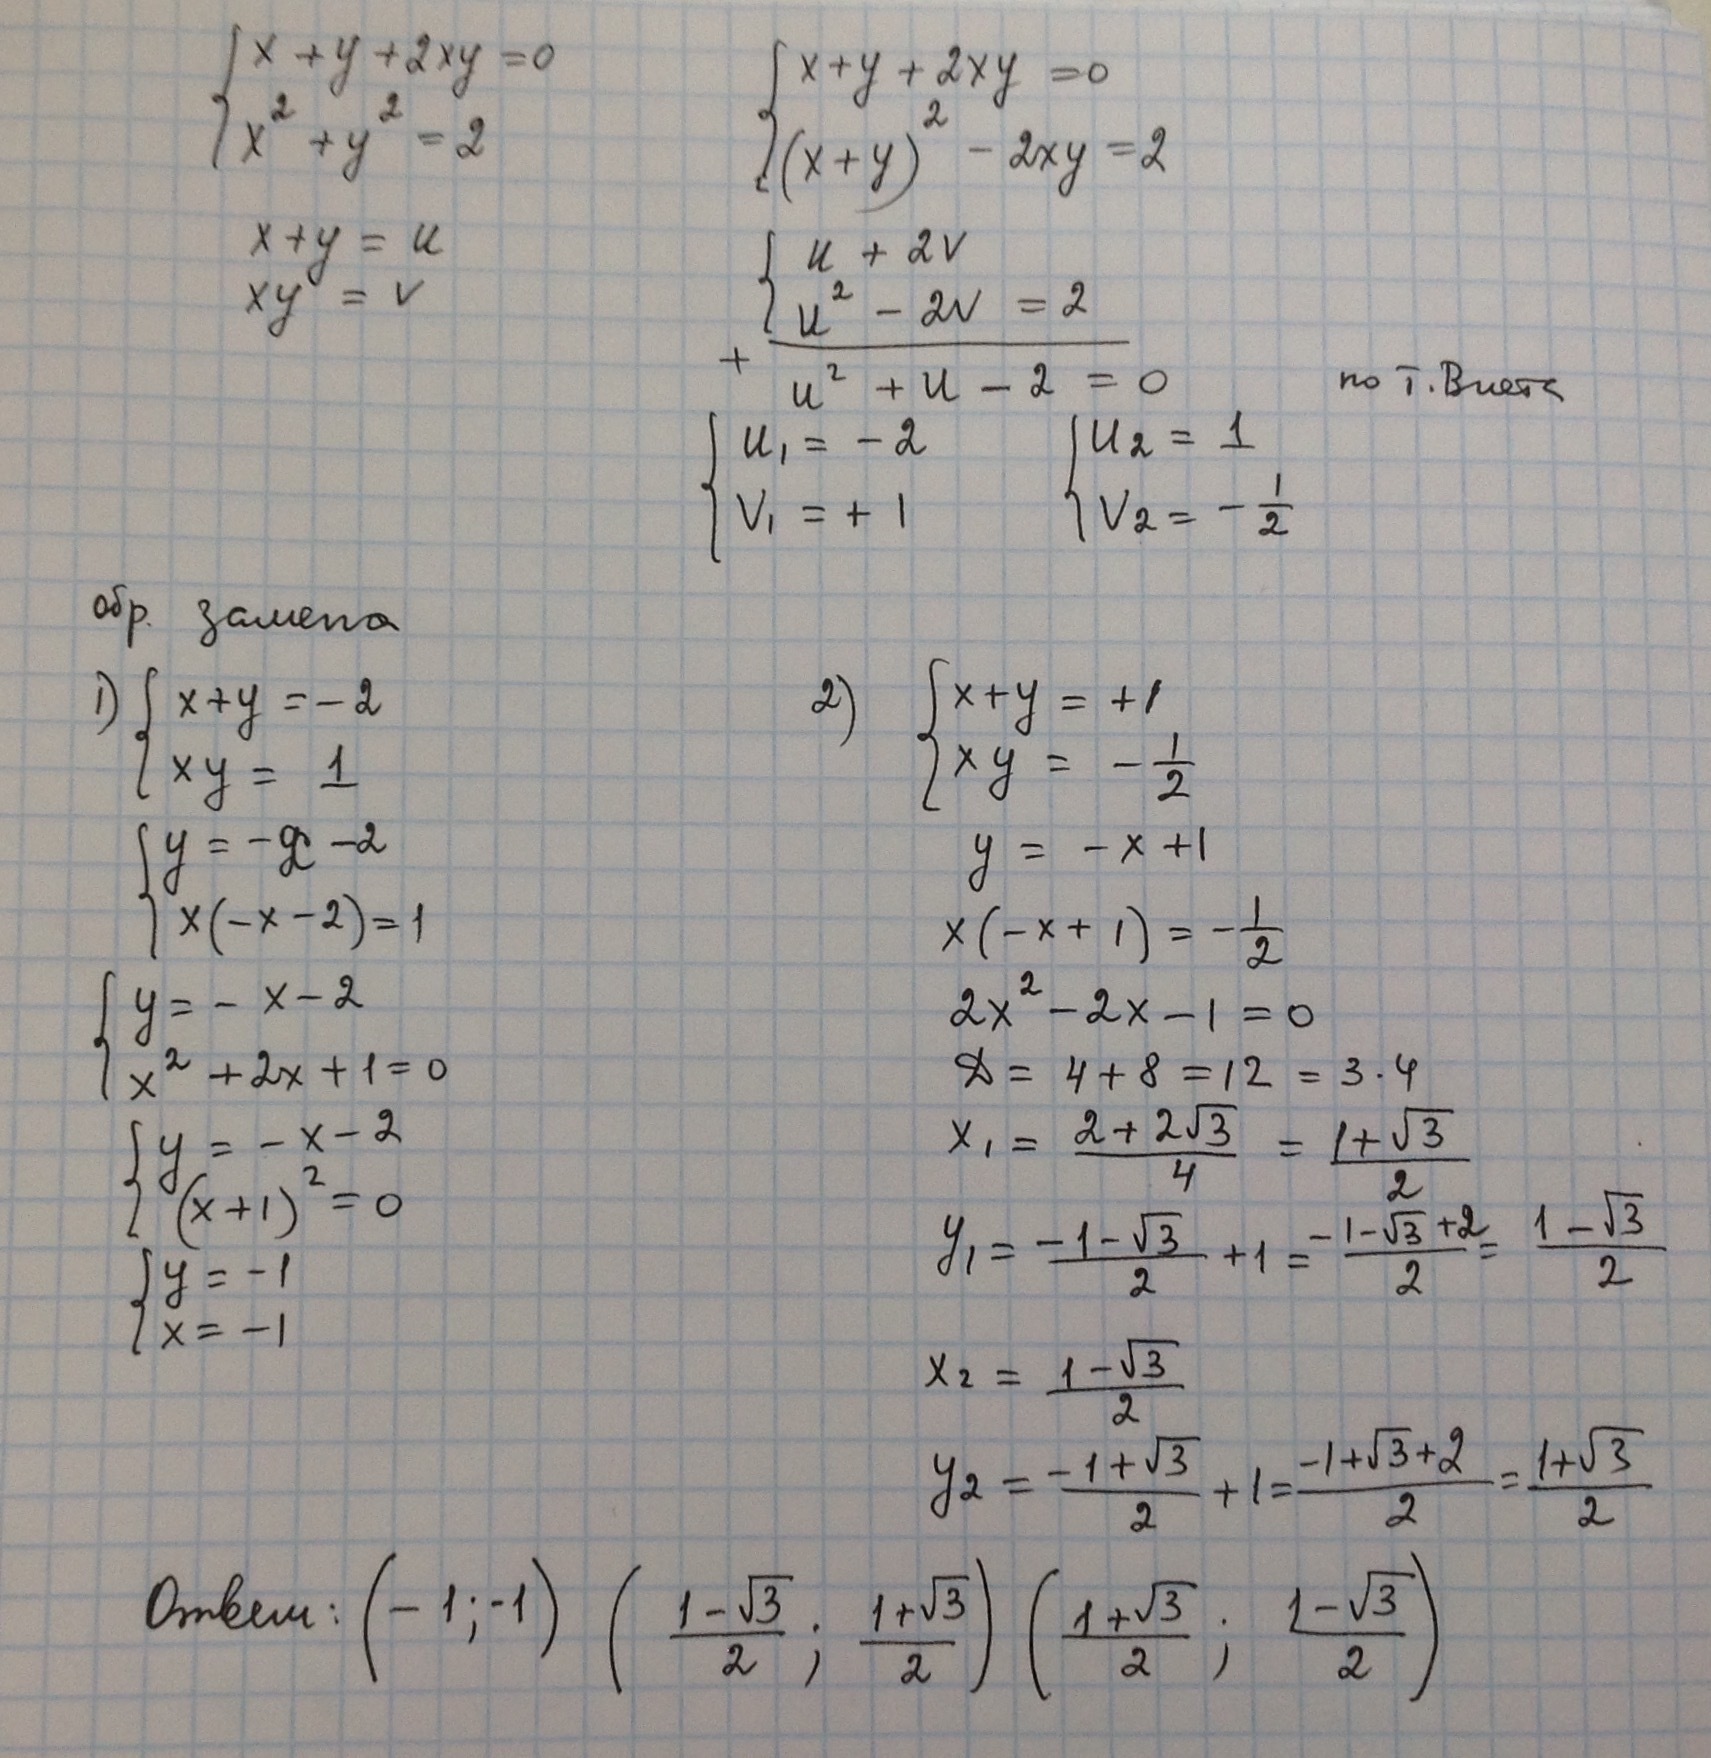 x + y + 2xy = 0
x² + y² = 2
x + y + 2xy = 0
(x + y)² - 2xy = 2
x + y = u
xy = v
u + 2v
u² - 2v = 2
+
u² + u - 2 = 0 по т. Виета
u₁ = -2
v₁ = +1
u₂ = 1
v₂ = -1/2
обр. замена
1) x + y = -2
xy = 1
y = -x - 2
x(-x - 2) = 1
y = -x - 2
x² + 2x + 1 = 0
y = -x - 2
(x + 1)² = 0
y = -1
x = -1
2) x + y = +1
xy = -1/2
y = -x + 1
x(-x + 1) = -1/2
2x² - 2x - 1 = 0
D = 4 + 8 = 12 = 3·4
x₁ = (2 + 2√3)/4 = (1 + √3)/2
y₁ = (-1 - √3)/2 + 1 = (-1 - √3 + 2)/2 = (1 - √3)/2
x₂ = (1 - √3)/2
y₂ = (-1 + √3)/2 + 1 = (-1 + √3 + 2)/2 = (1 + √3)/2
Ответ: (-1; -1) ((1 - √3)/2; (1 + √3)/2) ((1 + √3)/2; (1 - √3)/2)